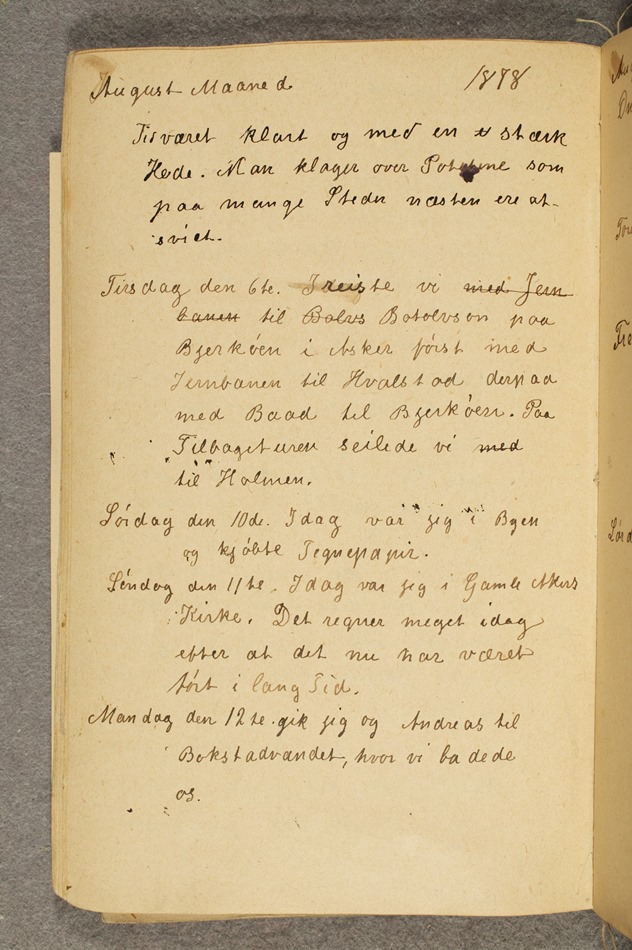 August Maaned 1878
Tidværet klart og med en st stærk
Hede. Man klager over Poteterne som
paa mange Steder næsten ere at-
sviet.
Tirsdag den 6te. I reiste vi med Jern
banen til Bolvs Botolvson paa
Bjerkøen i Asker først med
Jernbanen til Hvalstad derpaa
med Baad til Bjerkøen. Paa
Tilbageturen seilede vi med
til Holmen.
Lørdag den 10de. Idag var jeg i Byen
og kjøbte Tegnepapir.
Søndag den 11te. Idag var jeg i Gamle Akers
Kirke. Det regner meget idag
efter at det nu har været
tørt i lang Tid.
Mandag den 12te. gik jeg og Andreas til
Bokstadvandet, hvor vi badede
os.